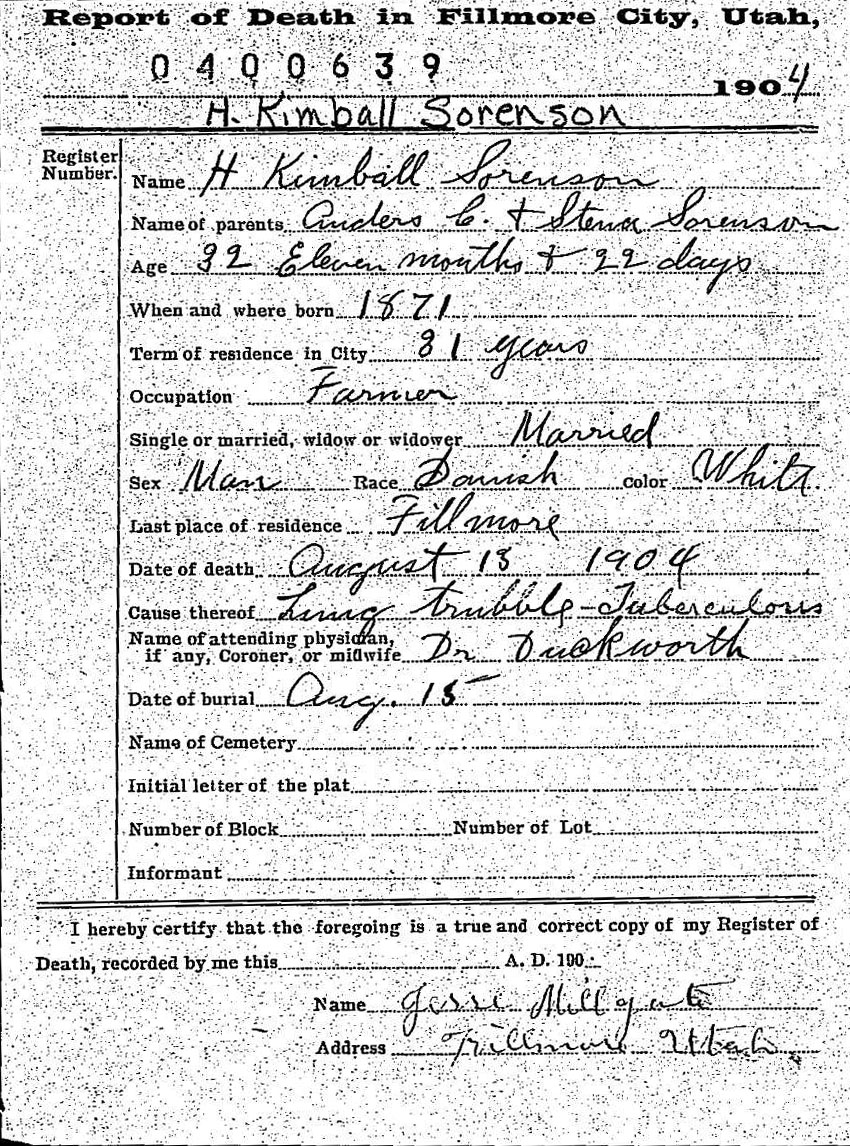 Report of Death in Fillmore City, Utah,
0400639
1904
H. Kimball Sorenson
Register Number.
Name H Kimball Sorenson
Name of parents Anders C. + Stena Sorenson
Age 32 Eleven months + 22 days
When and where born 1871
Term of residence in City 31 years
Occupation Farmer
Single or married, widow or widower Married
Sex Man Race Danish color White
Last place of residence Fillmore
Date of death August 13 1904
Cause thereof Lung trubble - Tuberculosis
Name of attending physician,
if any, Coroner, or midwife Dr Duckworth
Date of burial Aug. 15
Name of Cemetery
Initial letter of the plat
Number of Block Number of Lot
Informant
I hereby certify that the foregoing is a true and correct copy of my Register of
Death, recorded by me this A. D. 190
Name Jesse Millgate
Address Fillmore Utah.